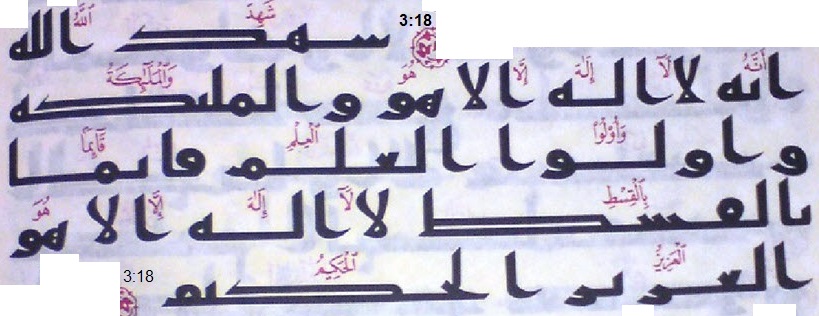 3:18
شَهِدَ ٱللَّهُ
شهد الله
أَنَّهُ لَآ إِلَٰهَ إِلَّا هُوَ وَٱلْمَلَٰٓئِكَةُ
انه لا اله الا هو والملئكه
وَأُو۟لُوا۟ ٱلْعِلْمِ قَآئِمًۢا
واولوا العلم قائما
بِٱلْقِسْطِ لَآ إِلَٰهَ إِلَّا هُوَ
بالقسط لا اله الا هو
ٱلْعَزِيزُ ٱلْحَكِيمُ
العزيز الحكيم
3:18